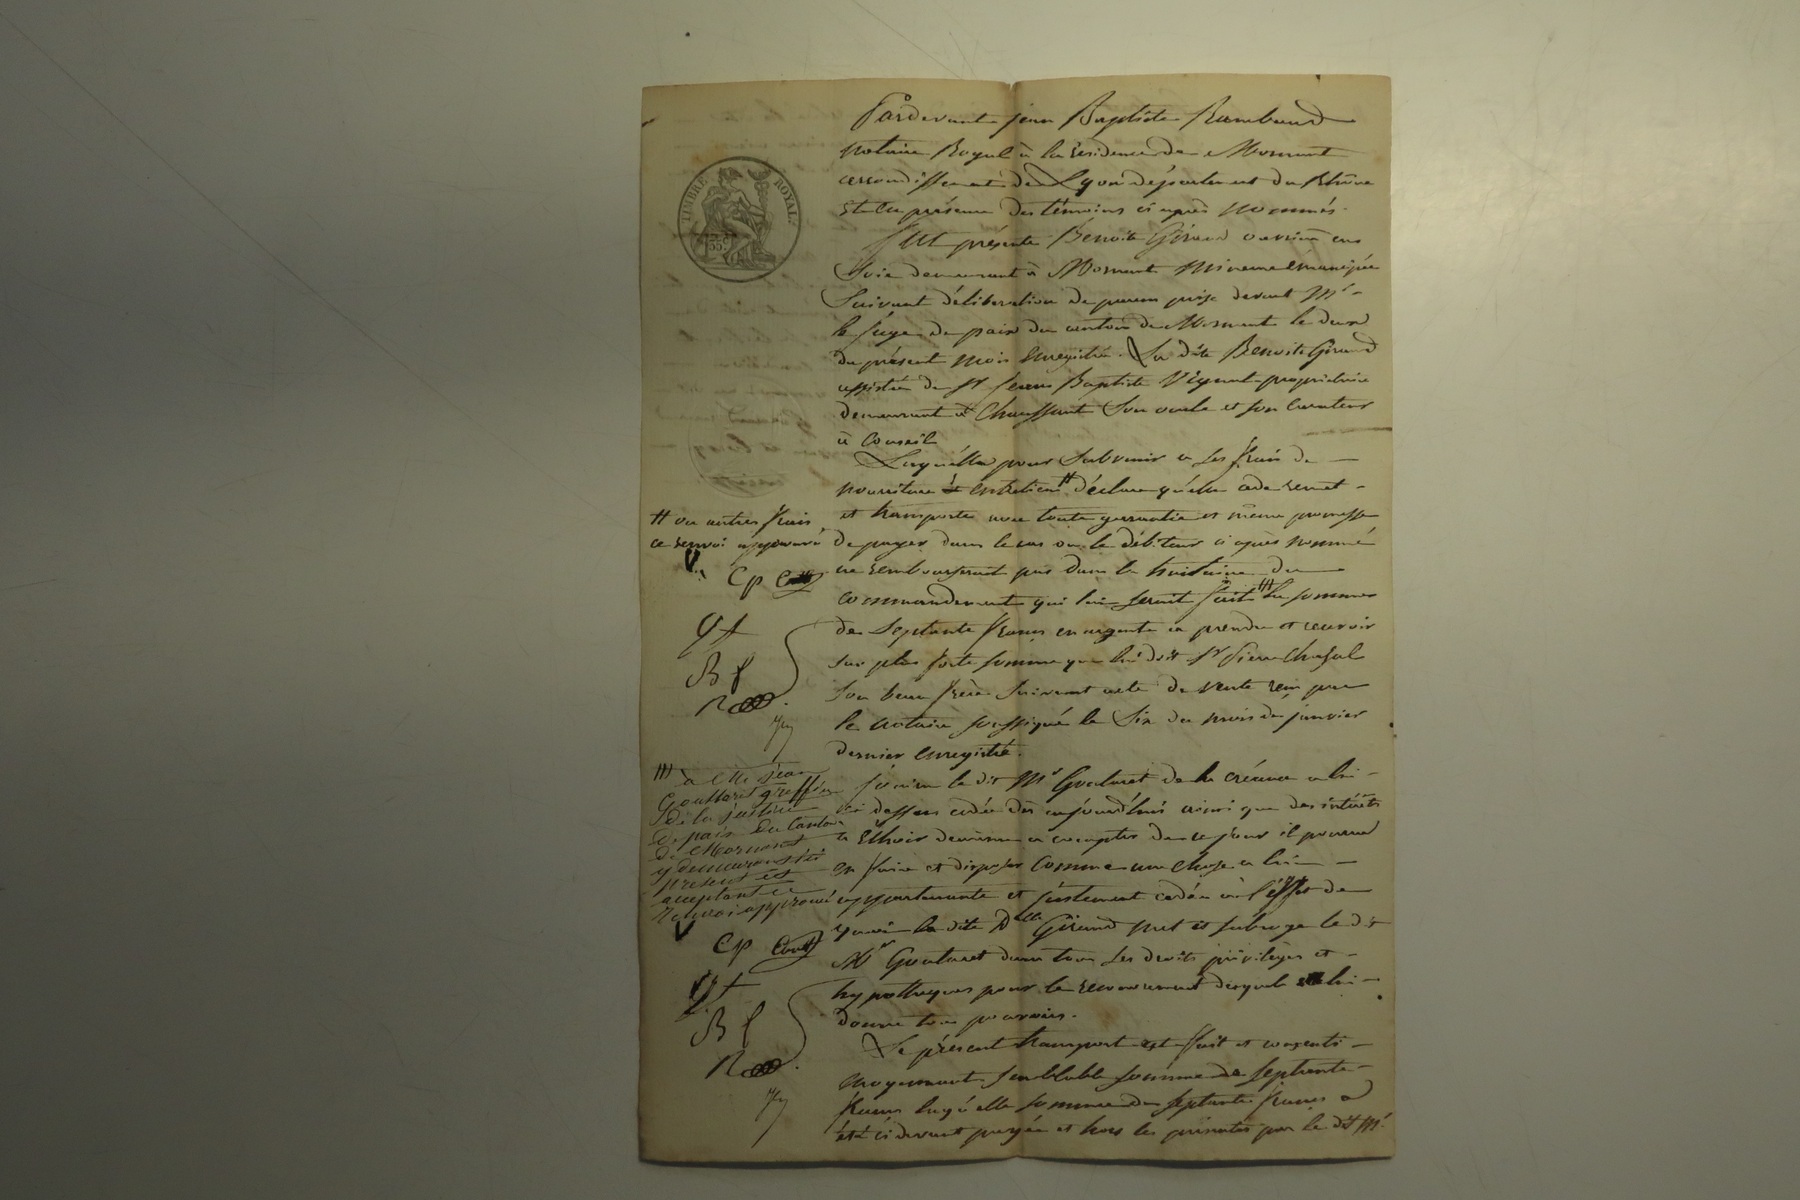 Pardevant jean Baptiste Rambaud
notaire Royal à la résidence de Mornant
arrondissement de Lyon département du Rhône
et en présence des témoins ci après nommés.
fut présente Benoite Giraud ouvrière en
Soie demeurant à Mornant mineure émancipée
Suivant délibération de parens prise devant Mr
le juge de paix du canton de Mornant le deux
du présent mois enregistrée. La dite Benoite Giraud
assistée de Sr jean Baptiste demeurant propriétaire
demeurant à Chaussant Son oncle et son curateur
à Conseil
Laquelle pour Subvenir a ses frais de
nourriture et entretien # déclare qu'elle cède remet
et transporte avec toute garantie et même promesse
de payer dans le cas ou le débiteur ci après nommé
ne rembourserait pas dans la huitaine du
commandement qui lui serait fait la somme
de Septante francs en argent a prendre et recevoir
sur plus forte somme que lui doit Sr Pierre
Son beau frère Suivant acte de vente reçu par
le notaire soussigné le Six du mois de janvier
dernier enregistré.
# ou autres frais
ce renvoi approuvé
CP
BF
à Me jean
Goultaret greffier
de la justice
de paix du canton
de Mornant
y demeurant ici
présent et
acceptant ce
renvoi approuvé
CP
BF
le dit Mr Goultaret de la créance a lui
ci dessus cédée dès aujourd'hui ainsi que des intérêts
a Echoir a compter de ce jour il pourra
en faire et disposer Comme une chose a lui
appartenante et justement cédée à l'éffet de
quoi la dite Dlle Giraud met et subroge le dit
Mr Goultaret dans tous ses droits privilèges et
hypothèques pour le recouvrement desquels lui
donne tous pouvoirs.
Le présent transport est fait et consenti
moyennant semblable somme de septante
francs laquelle somme de septante francs a
été ci devant payée et hors les présentes par le dit Mr
TIMBRE ROYAL
35c